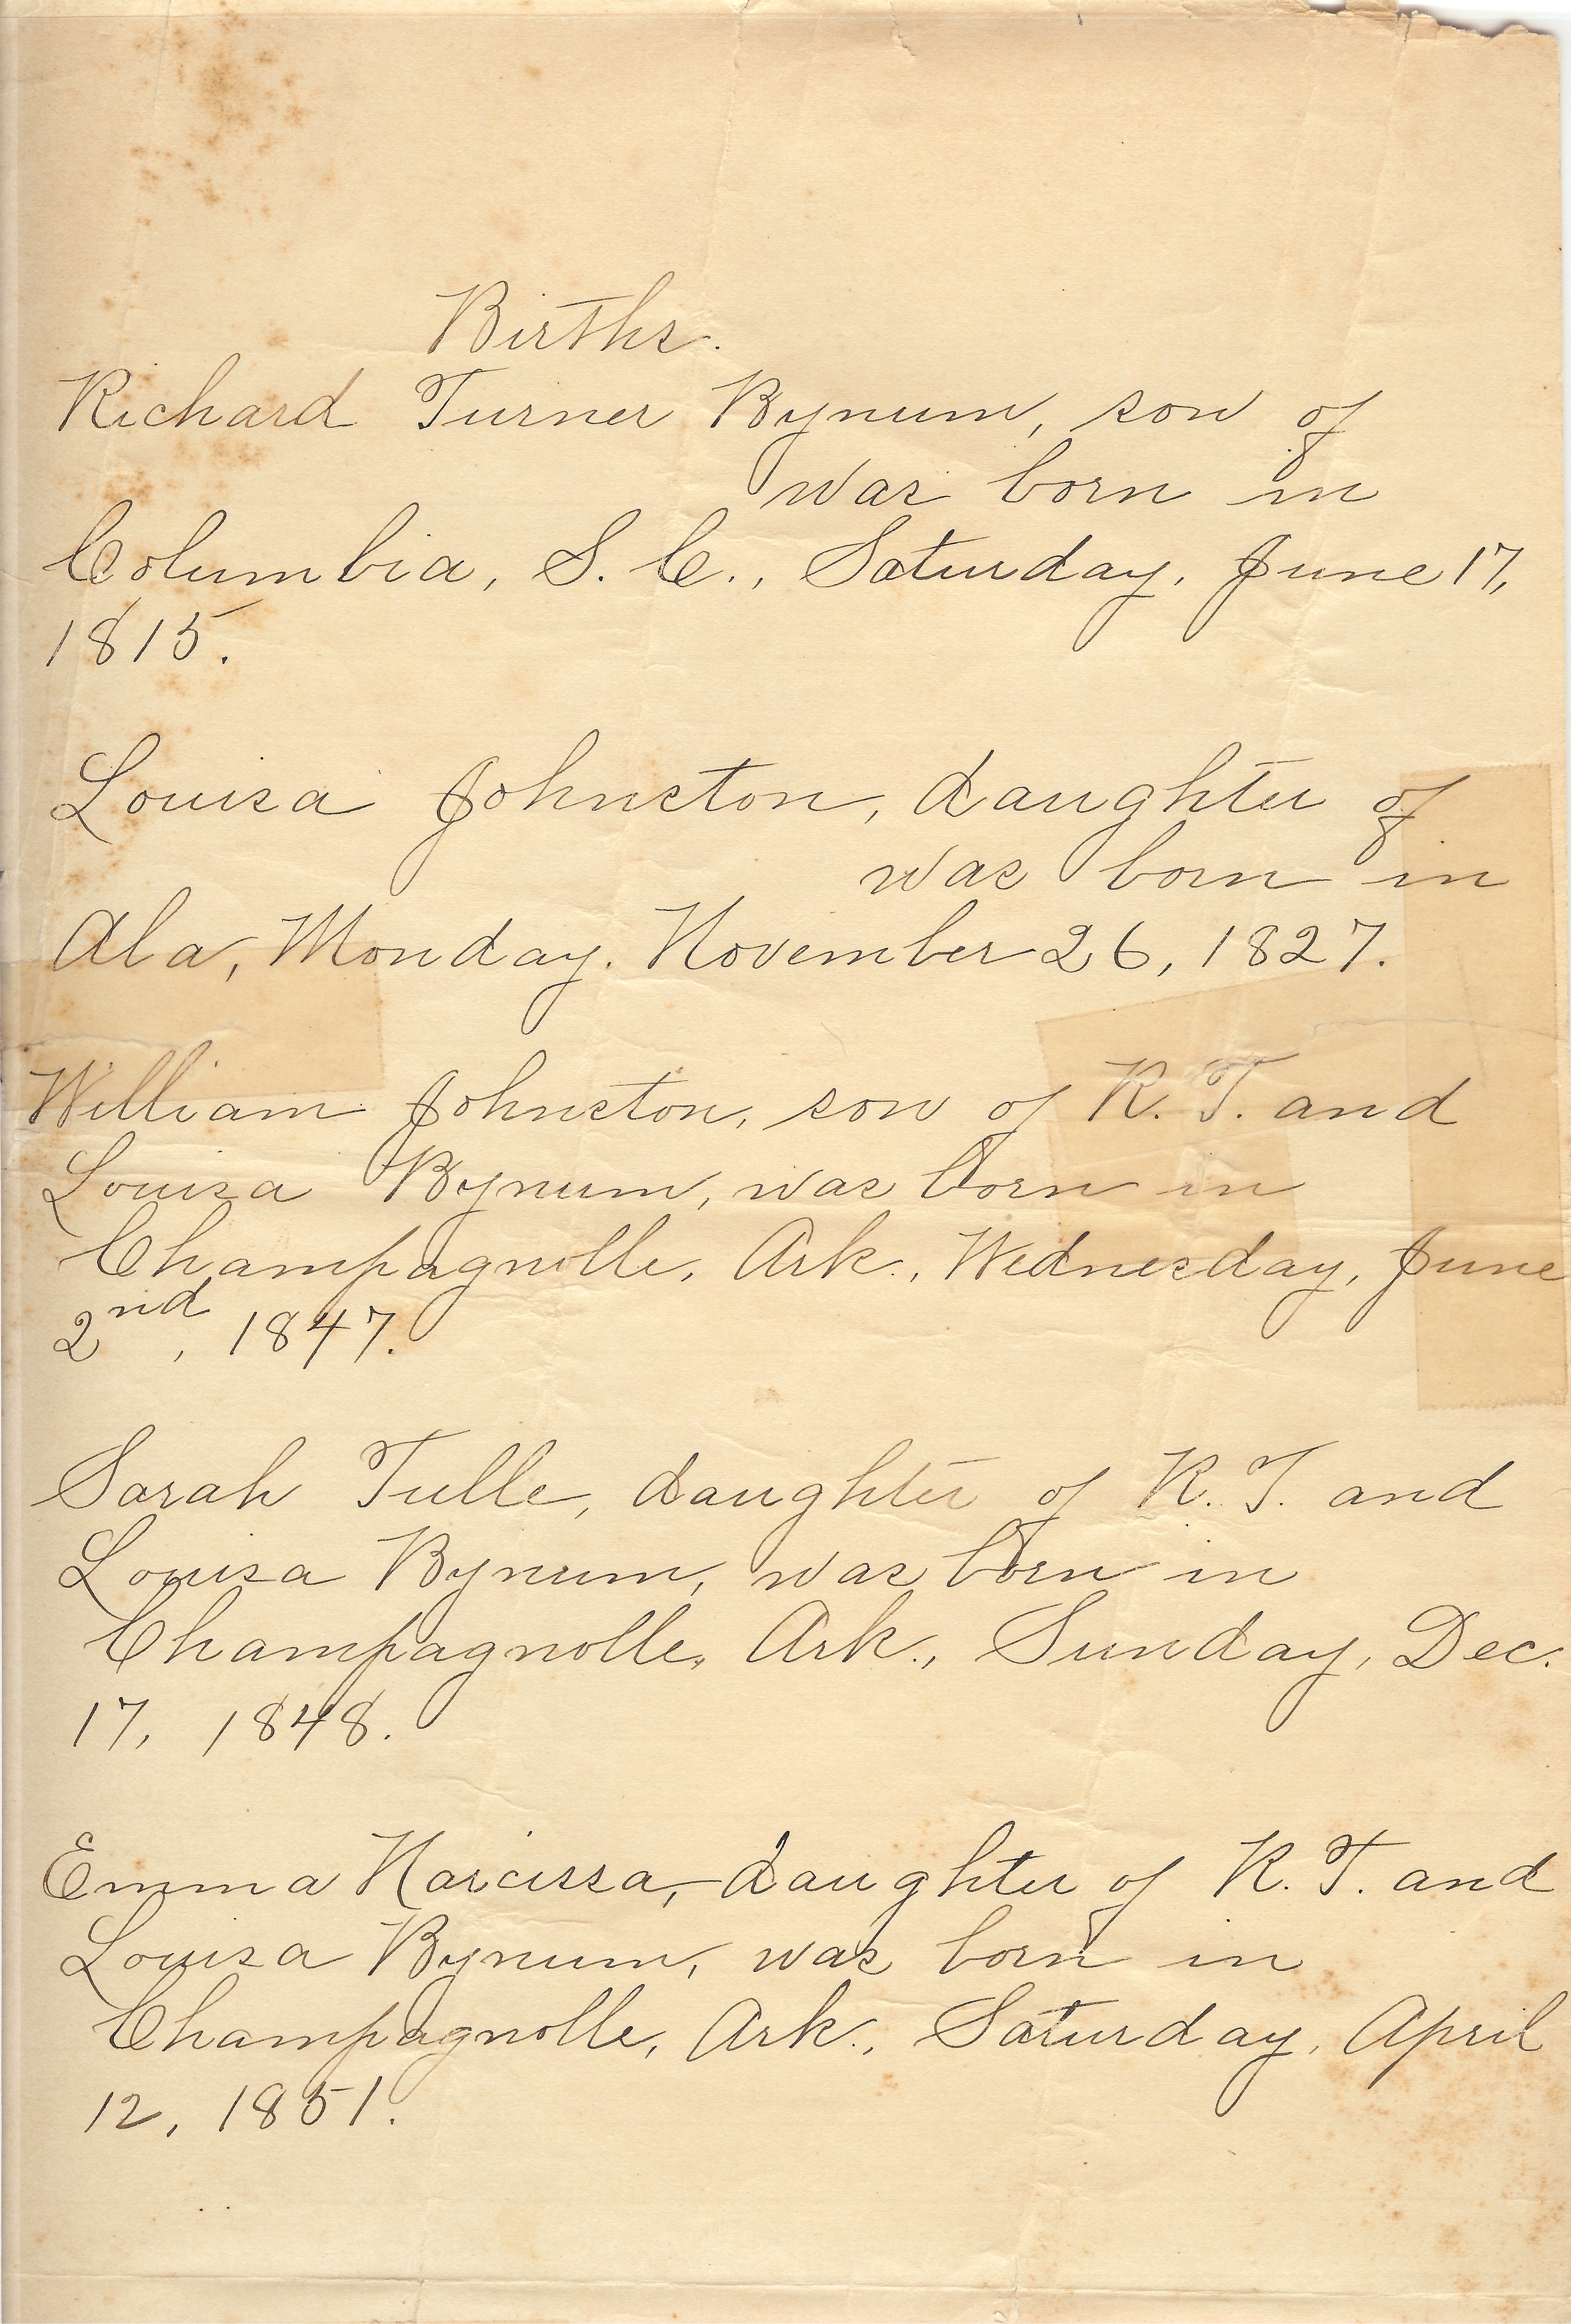 Births.
Richard Turner Bynum, son of
was born in
Columbia, S. C., Saturday, June 17,
1815.
Louisa Johnston, daughter of
was born in
Ala, Monday. November 26, 1827.
William Johnston, son of R. T. and
Louisa Bynum, was born in
Champagnolle, Ark., Wednesday, June
2nd, 1847.
Sarah Tulle, daughter of R. T. and
Louisa Bynum, was born in
Champagnolle, Ark., Sunday, Dec.
17, 1848.
Emma Narcissa, daughter of R. T. and
Louisa Bynum, was born in
Champagnolle, Ark., Saturday, April
12, 1851.